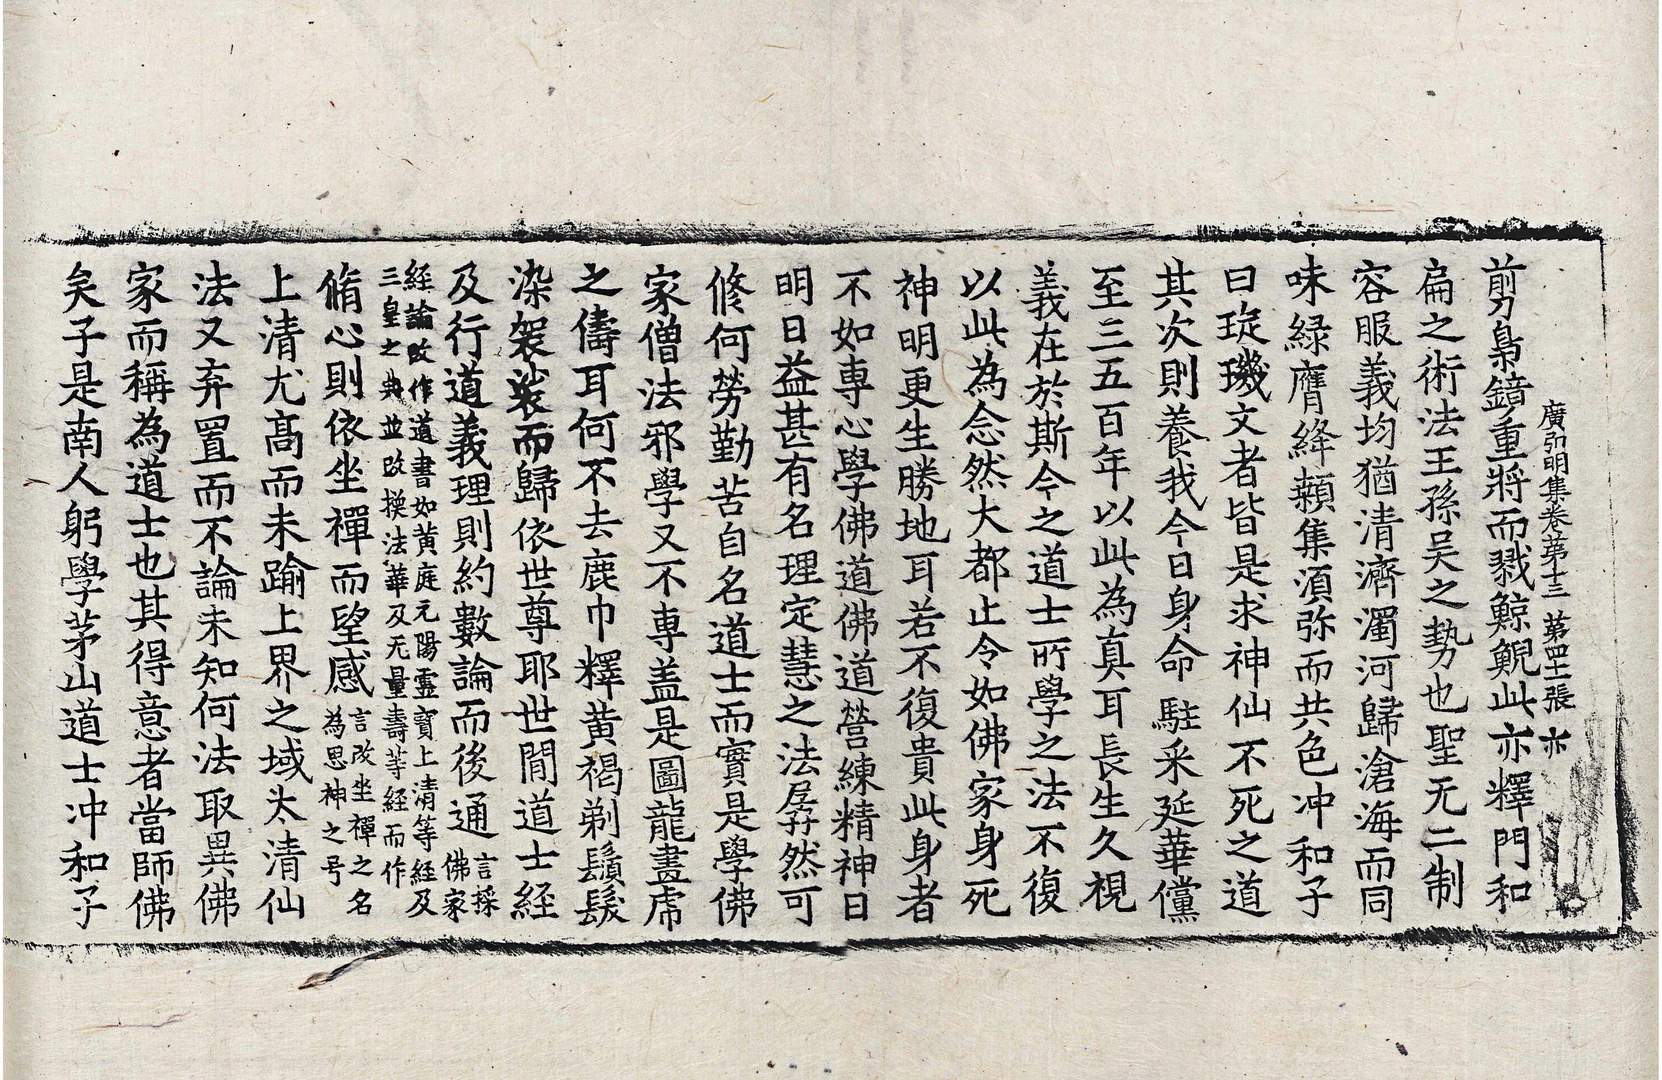 廣弘明集卷第十三 第四十張 亦
剪梟鏡重將而戮鯨鯢此亦釋門和
扁之術法王孫吴之勢也聖无二制
容服義均猶清濟濁河歸滄海而同
味緑膺絳顙集湏弥而共色冲和子
曰琁璣文者皆是求神仙不死之道
其次則養我今日身命駐采延華儻
至三五百年以此為真耳長生久視
義在於斯今之道士所學之法不復
以此為念然大都止令如佛家身死
神明更生勝地耳若不復貴此身者
不如専心學佛道佛道營練精神日
明日益甚有名理定慧之法孱然可
修何勞勤苦自名道士而實是學佛
家僧法邪學又不専盖是圖龍畫虎
之儔耳何不去鹿巾釋黄褐剃鬚髮
染袈裟而歸依世尊耶世間道士經
及行道義理則約數論而後通言採佛家
経論改作道書如黄庭元陽靈寳上清等経及
三皇之典並改換法華及无量壽等経而作
脩心則依坐禪而望感言改坐禪之名為思神之号
上清尤髙而未踰上界之域太清仙
法又弃置而不論未知何法取異佛
家而稱為道士也其得意者當師佛
矣子是南人躬學茅山道士冲和子